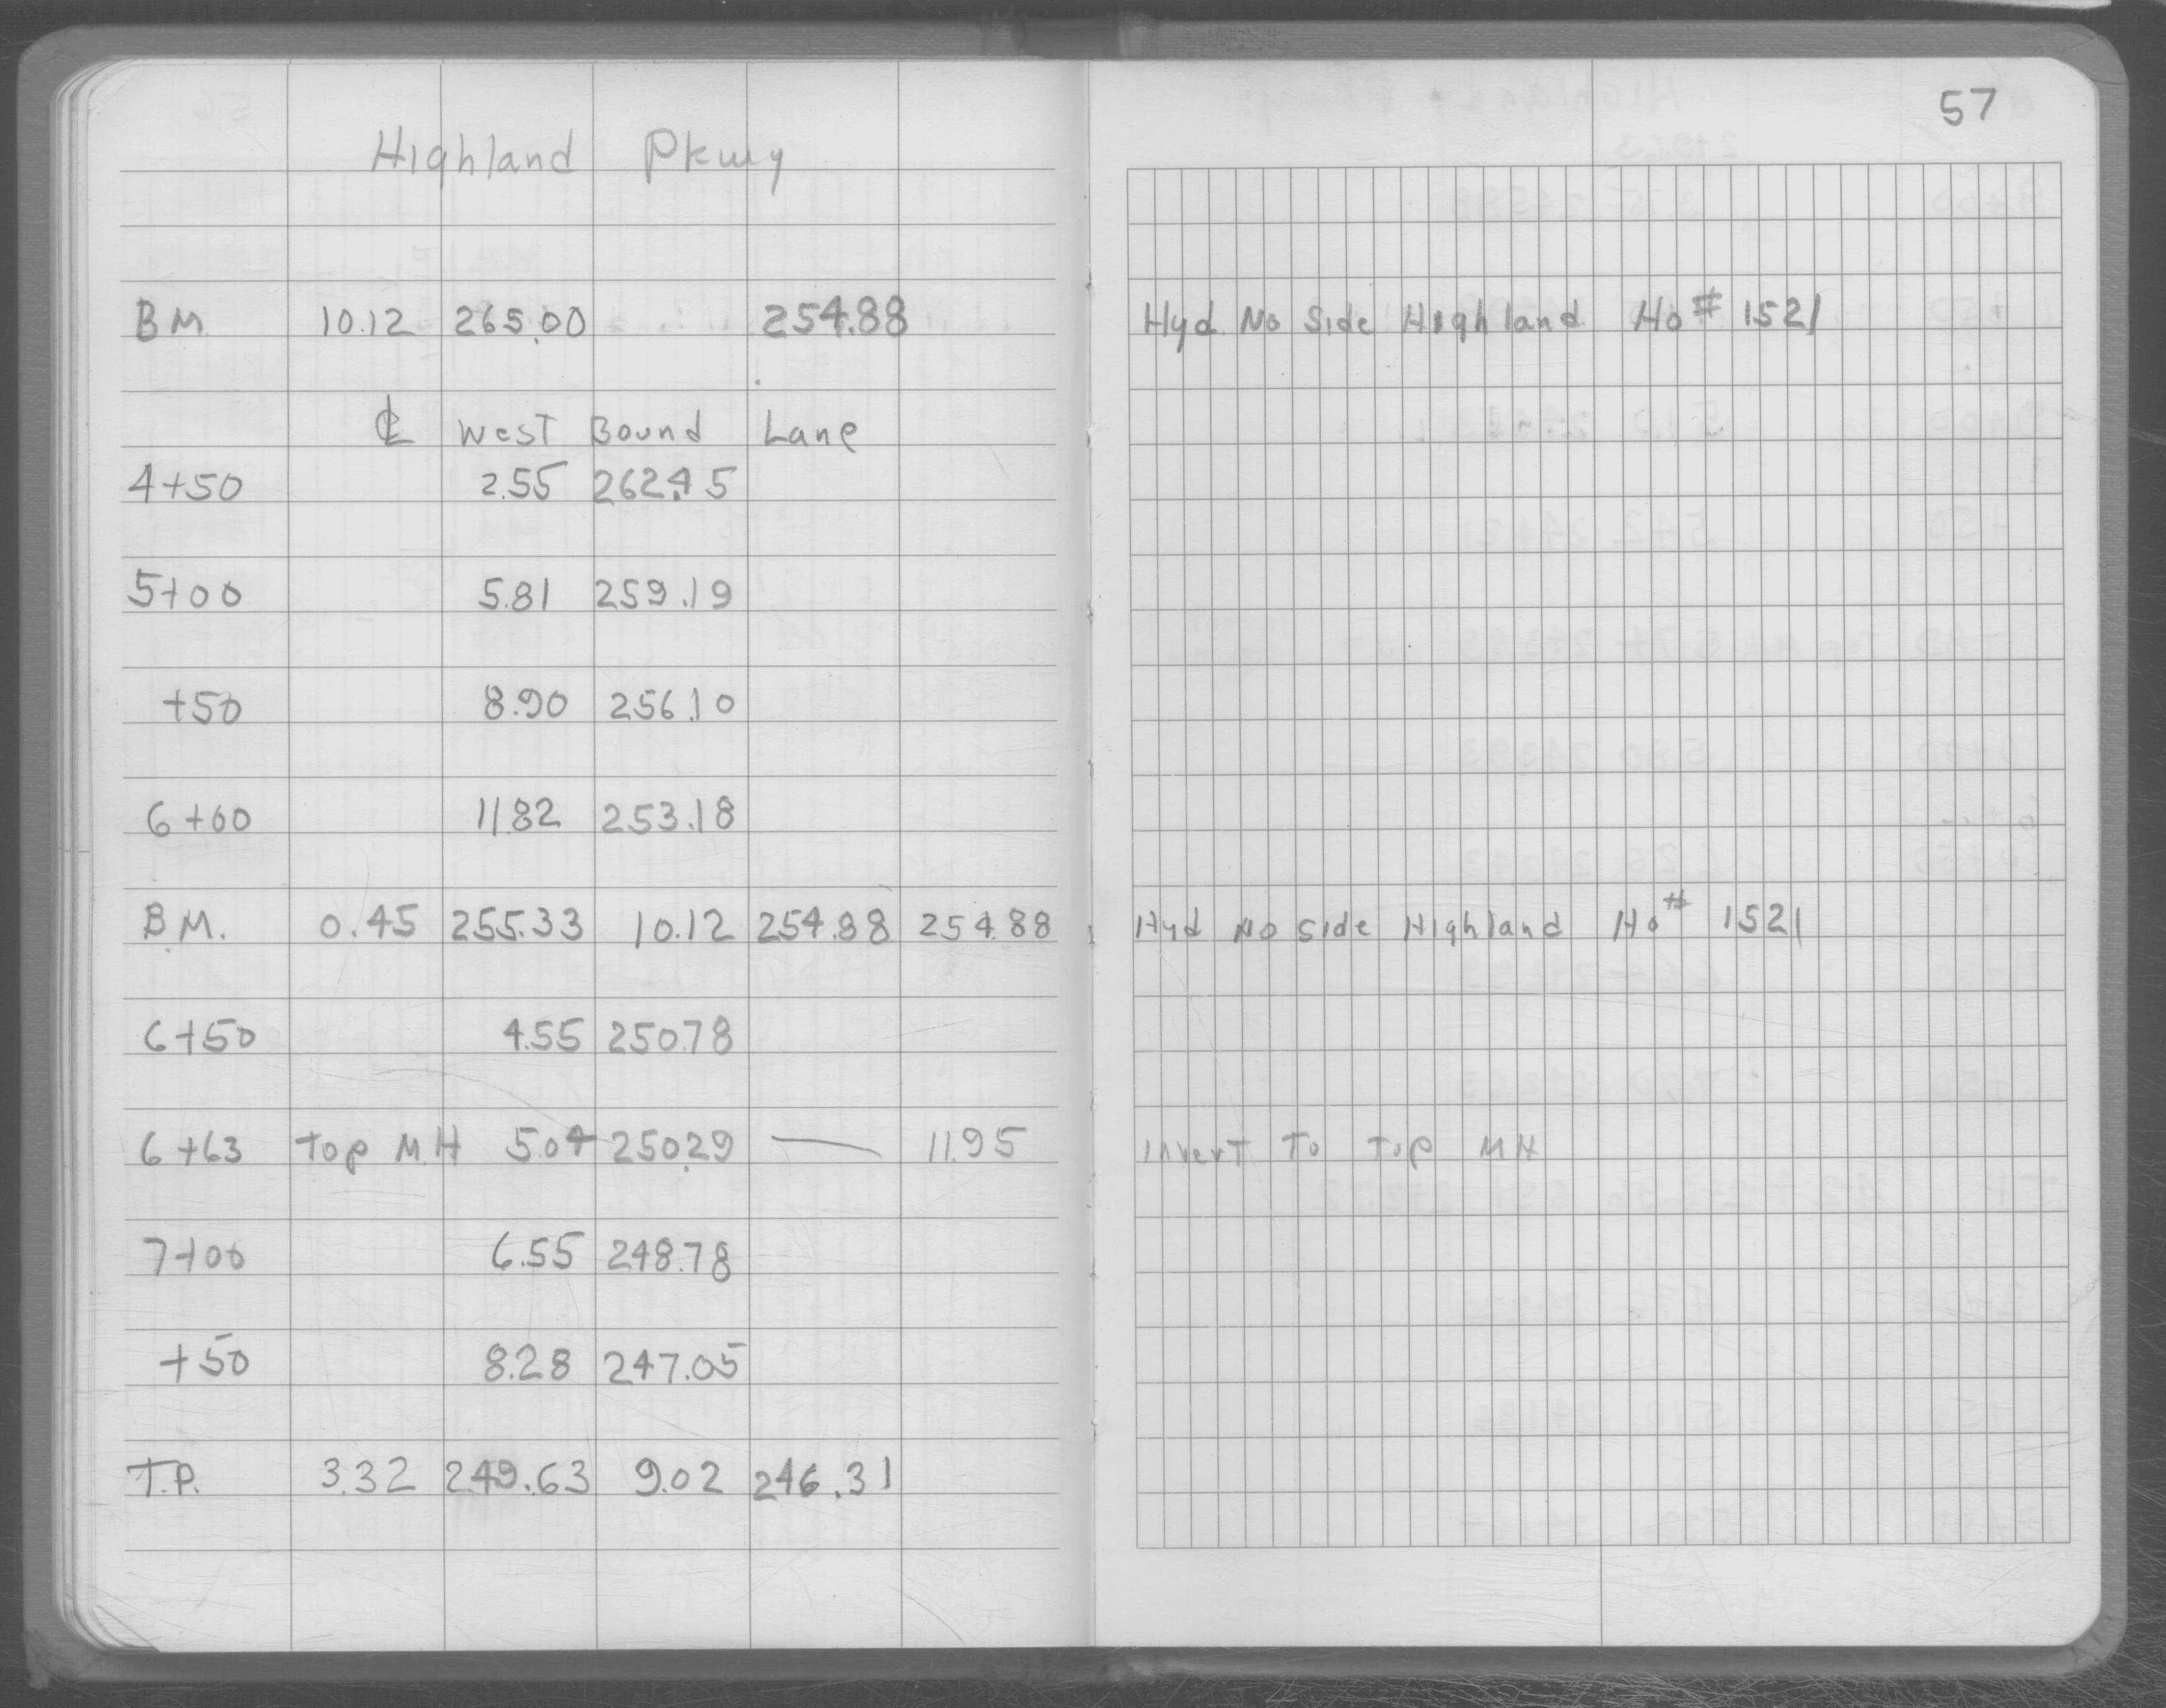 57
Highland Pkwy
BM. 10.12 265.00 254.88 Hyd No Side Highland Ho# 1521
℄ West Bound Lane
4+50 2.55 262.45
5+00 5.81 259.19
+50 8.90 256.10
6+00 11.82 253.18
B.M. 0.45 255.33 10.12 254.88 254.88 Hyd No Side Highland Ho# 1521
6+50 4.55 250.78
6+63 Top M.H 5.04 250.29 — 11.95 Invert To Top MH
7+00 6.55 248.78
+50 8.28 247.05
T.P. 3.32 249.63 9.02 246.31